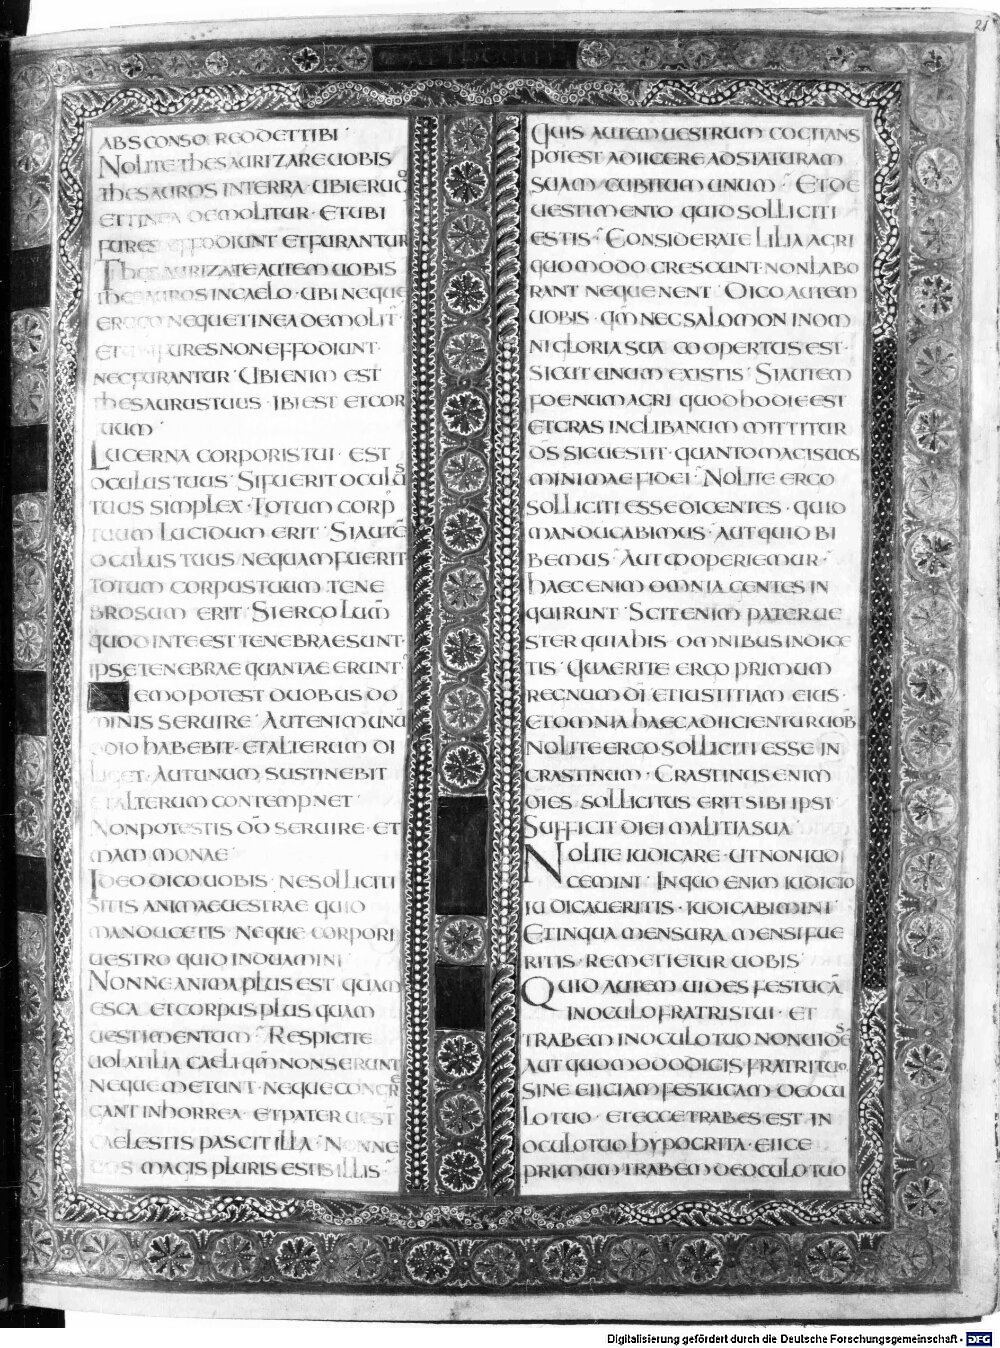 21
ABSCONSO REDDET TIBI·
NOLITE THESAURIZARE UOBIS
THESAUROS IN TERRA UBI ERUG̅
ET TINEA DEMOLITUR· ET UBI
FURES EFFODIUNT ET FURANTUR
THESAURIZATE AUTEM UOBIS
THESAUROS IN CAELO· UBI NEQUE
ERUGO NEQUE TINEA DEMOLIT·
ET UBI FURES NON EFFODIUNT·
NEC FURANTUR· UBI ENIM EST
THESAURUS TUUS· IBI EST ET COR
TUUM·
LUCERNA CORPORIS TUI· EST
OCULUS TUUS· SI FUERIT OCULUS
TUUS SIMPLEX· TOTUM CORP
TUUM LUCIDUM ERIT· SI AUTE̅
OCULUS TUUS NEQUAM FUERIT
TOTUM CORPUS TUUM TENE
BROSUM ERIT· SI ERGO LUM̅
QUOD IN TE EST TENEBRAE SUNT·
IPSE TENEBRAE QUANTAE ERUNT·
NEMO POTEST DUOBUS DO
MINIS SERUIRE· AUT ENIM UNU̅
ODIO HABEBIT· ET ALTERUM DI
LIGET· AUT UNUM SUSTINEBIT
ET ALTERUM CONTEMPNET·
NON POTESTIS DO̅ SERUIRE· ET
MAMMONAE·
IDEO DICO UOBIS· NE SOLLICITI
SITIS ANIMAE UESTRAE QUID
MANDUCETIS NEQUE CORPORI
UESTRO QUID INDUAMINI
NONNE ANIMA PLUS EST QUAM
ESCA ET CORPUS PLUS QUAM
UESTIMENTUM· RESPICITE
UOLATILIA CAELI QM̅ NON SERUNT
NEQUE METUNT· NEQUE CONGRE
GANT IN HORREA· ET PATER UEST̅
CAELESTIS PASCIT ILLA· NONNE
UOS MAGIS PLURIS ESTIS ILLIS·
QUIS AUTEM UESTRUM COGITANS
POTEST ADIICERE AD STATURAM
SUAM CUBITUM UNUM· ET DE
UESTIMENTO QUID SOLLICITI
ESTIS· CONSIDERATE LILIA AGRI
QUOMODO CRESCUNT· NON LABO
RANT NEQUE NENT· DICO AUTEM
UOBIS· QM̅ NEC SALOMON IN OM
NI GLORIA SUA COOPERTUS EST·
SICUT UNUM EX ISTIS· SI AUTEM
FOENUM AGRI QUOD HODIE EST
ET CRAS IN CLIBANUM MITTITUR
DS̅ SIC UESTIT· QUANTO MAGIS UOS
MINIMAE FIDEI· NOLITE ERGO
SOLLICITI ESSE DICENTES· QUID
MANDUCABIMUS· AUT QUID BI
BEMUS· AUT QUO OPERIEMUR·
HAEC ENIM OMNIA GENTES IN
QUIRUNT· SCIT ENIM PATER UE
STER QUIA HIS OMNIBUS INDIGE
TIS· QUAERITE ERGO PRIMUM
REGNUM DI̅ ET IUSTITIAM EIUS·
ET OMNIA HAEC ADIICIENTUR UOB
NOLITE ERGO SOLLICITI ESSE IN
CRASTINUM· CRASTINUS ENIM
DIES SOLLICITUS ERIT SIBI IPSI
SUFFICIT DIEI MALITIA SUA·
NOLITE IUDICARE· UT NON IUDI
CEMINI· IN QUO ENIM IUDICIO
IUDICAUERITIS· IUDICABIMINI·
ET IN QUA MENSURA MENSI FUE
RITIS· REMETIETUR UOBIS·
QUID AUTEM UIDES FESTUCA̅
IN OCULO FRATRIS TUI· ET
TRABEM IN OCULO TUO NON UIDES
AUT QUOMODO DICIS FRATRI TUO·
SINE EIICIAM FESTUCAM DE OCU
LO TUO· ET ECCE TRABES EST IN
OCULO TUO HYPOCRITA· EIICE
PRIMUM TRABEM DE OCULO TUO
Digitalisierung gefördert durch die Deutsche Forschungsgemeinschaft - DFG